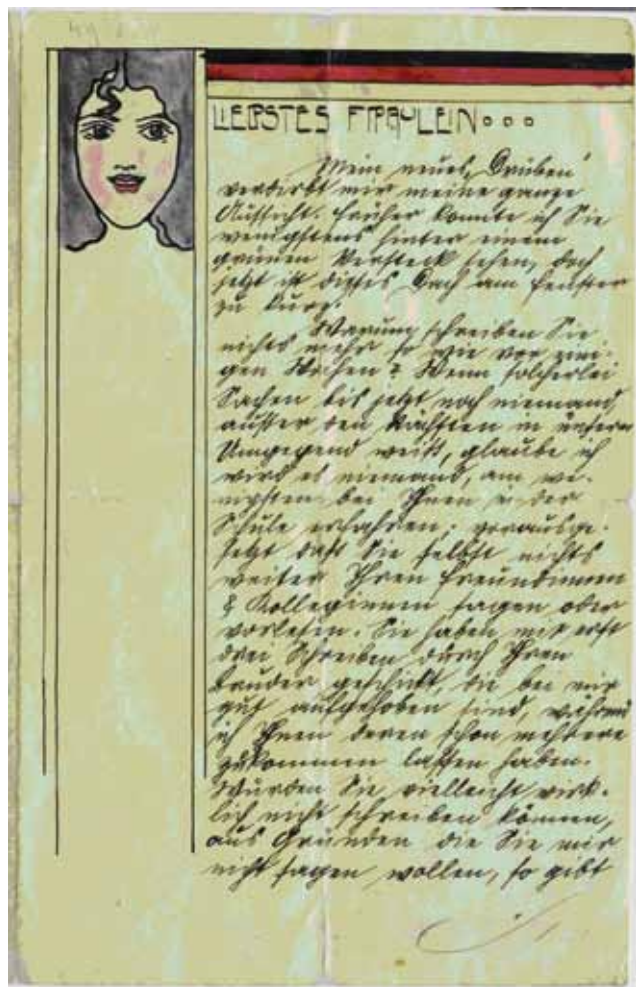 LIEBSTES FRÄULEIN...
Mein neues „Drüben“
verdirbt mir meine ganze
Aussicht. Früher konnte ich Sie
wenigstens hinter einem
grünen Versteck sehen, doch
jetzt ist dieses Dach am Fenster
zu kurz.
Warum schreiben Sie
nichts mehr so wie vor eini-
gen Wochen? Wenn solcherlei
Sachen bis jetzt noch niemand
ausser den Nächsten in unserer
Umgegend weiß, glaube ich
wird es niemand, am we-
nigsten bei Ihnen in der
Schule erfahren; vorausge-
setzt daß Sie selbst nichts
weiter Ihren Freundinnen
& Kolleginnen sagen oder
vorlesen. Sie haben mir erst
drei Schreiben durch Ihren
Bruder geschickt, die bei mir
gut aufgehoben sind, während
ich Ihnen deren schon mehrere
zukommen lassen habe.
Würden Sie vielleicht wirk-
lich nicht schreiben können,
aus Gründen die Sie mir
nicht sagen wollen, so gibt